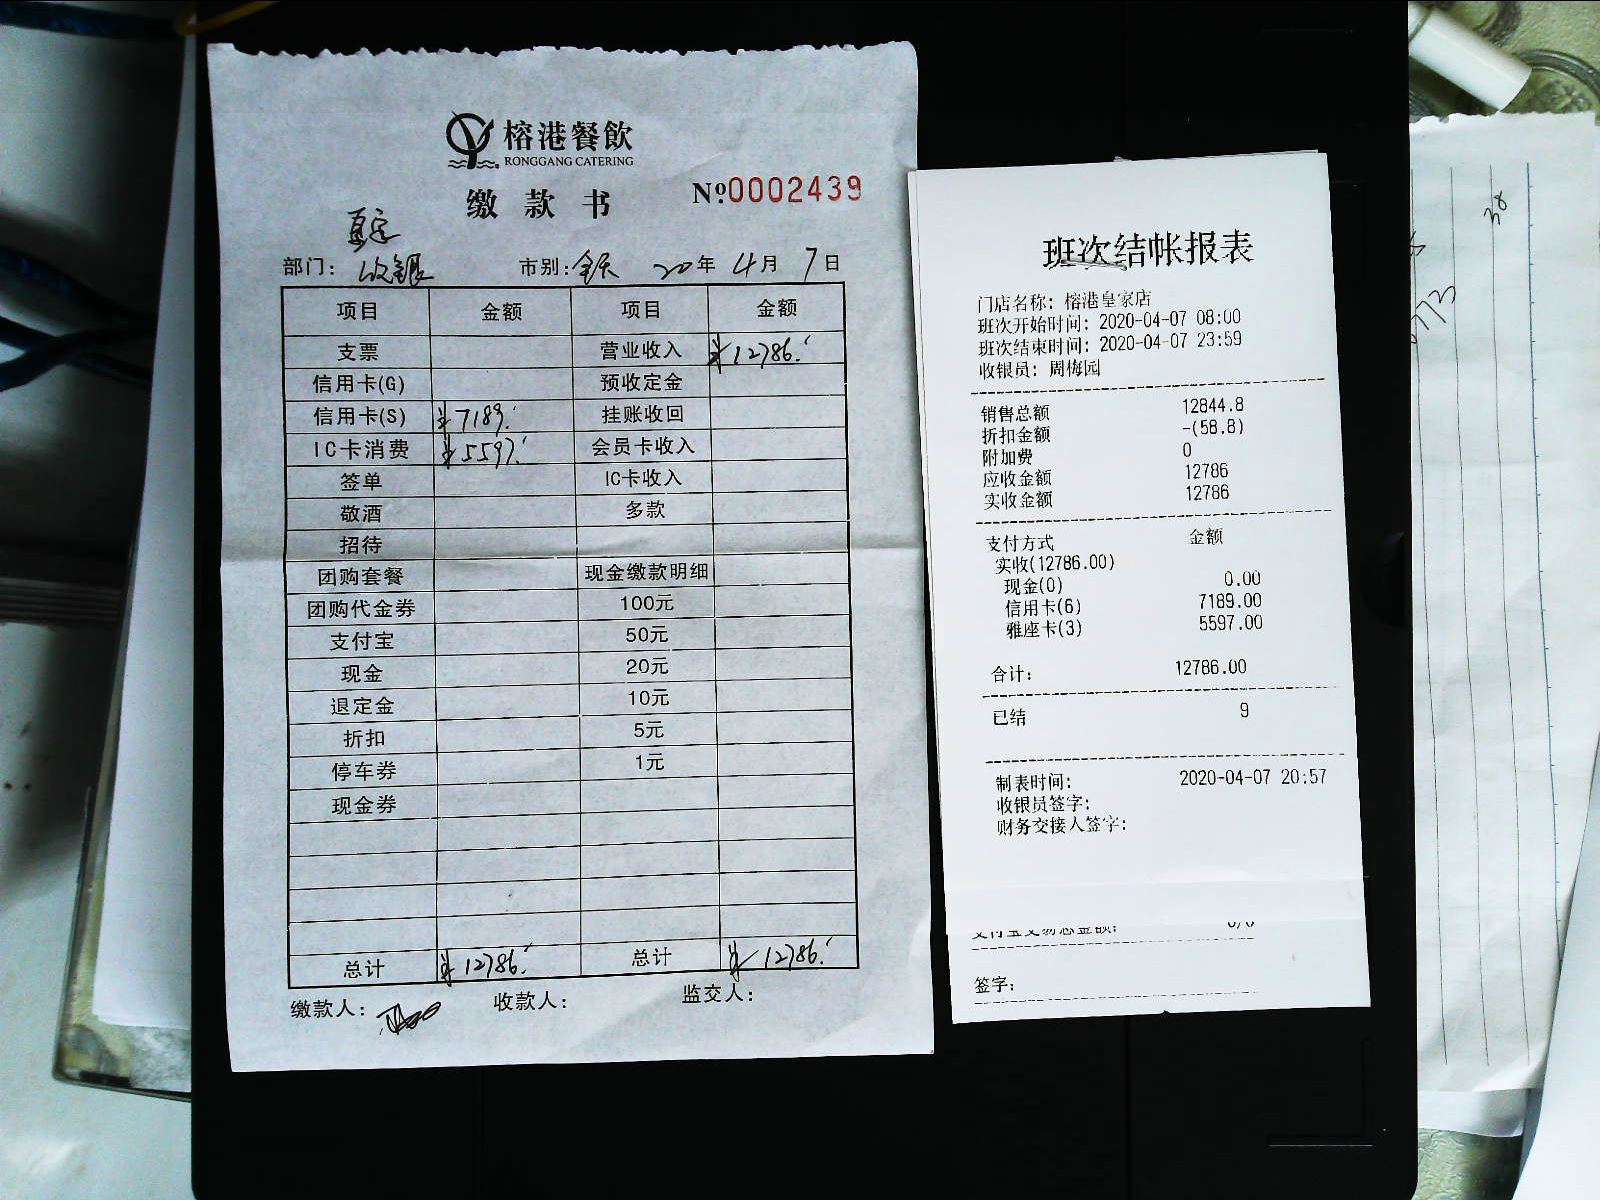 榕港餐飲
RONGGANG CATERING
缴款书
№0002439
皇家
部门: 收银 市别: 全天 20年 4月 7日
项目 金额 项目 金额
支票 营业收入 ¥12786.
信用卡(G) 预收定金
信用卡(S) ¥7189. 挂账收回
IC卡消费 ¥5597. 会员卡收入
签单 IC卡收入
敬酒 多款
招待
团购套餐 现金缴款明细
团购代金券 100元
支付宝 50元
现金 20元
退定金 10元
折扣 5元
停车券 1元
现金券
总计 ¥12786. 总计 ¥12786.
缴款人: 收款人: 监交人:
班次结帐报表
门店名称: 榕港皇家店
班次开始时间: 2020-04-07 08:00
班次结束时间: 2020-04-07 23:59
收银员: 周梅园
销售总额 12844.8
折扣金额 -(58.8)
附加费 0
应收金额 12786
实收金额 12786
支付方式 金额
实收(12786.00)
现金(0) 0.00
信用卡(6) 7189.00
雅座卡(3) 5597.00
合计: 12786.00
已结 9
制表时间: 2020-04-07 20:57
收银员签字:
财务交接人签字:
签字:
38